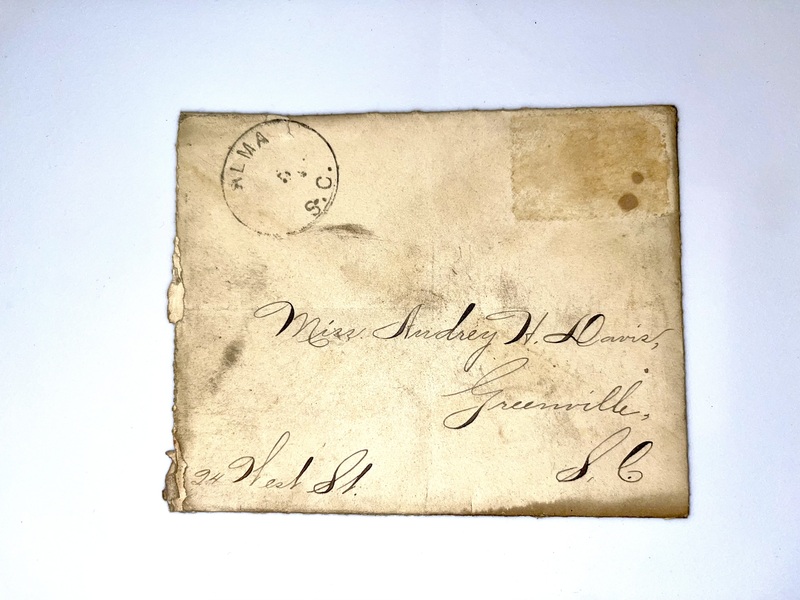 ALMA
S.C.
Miss. Audrey H. Davis,
Greenville,
S. C
24 West St.